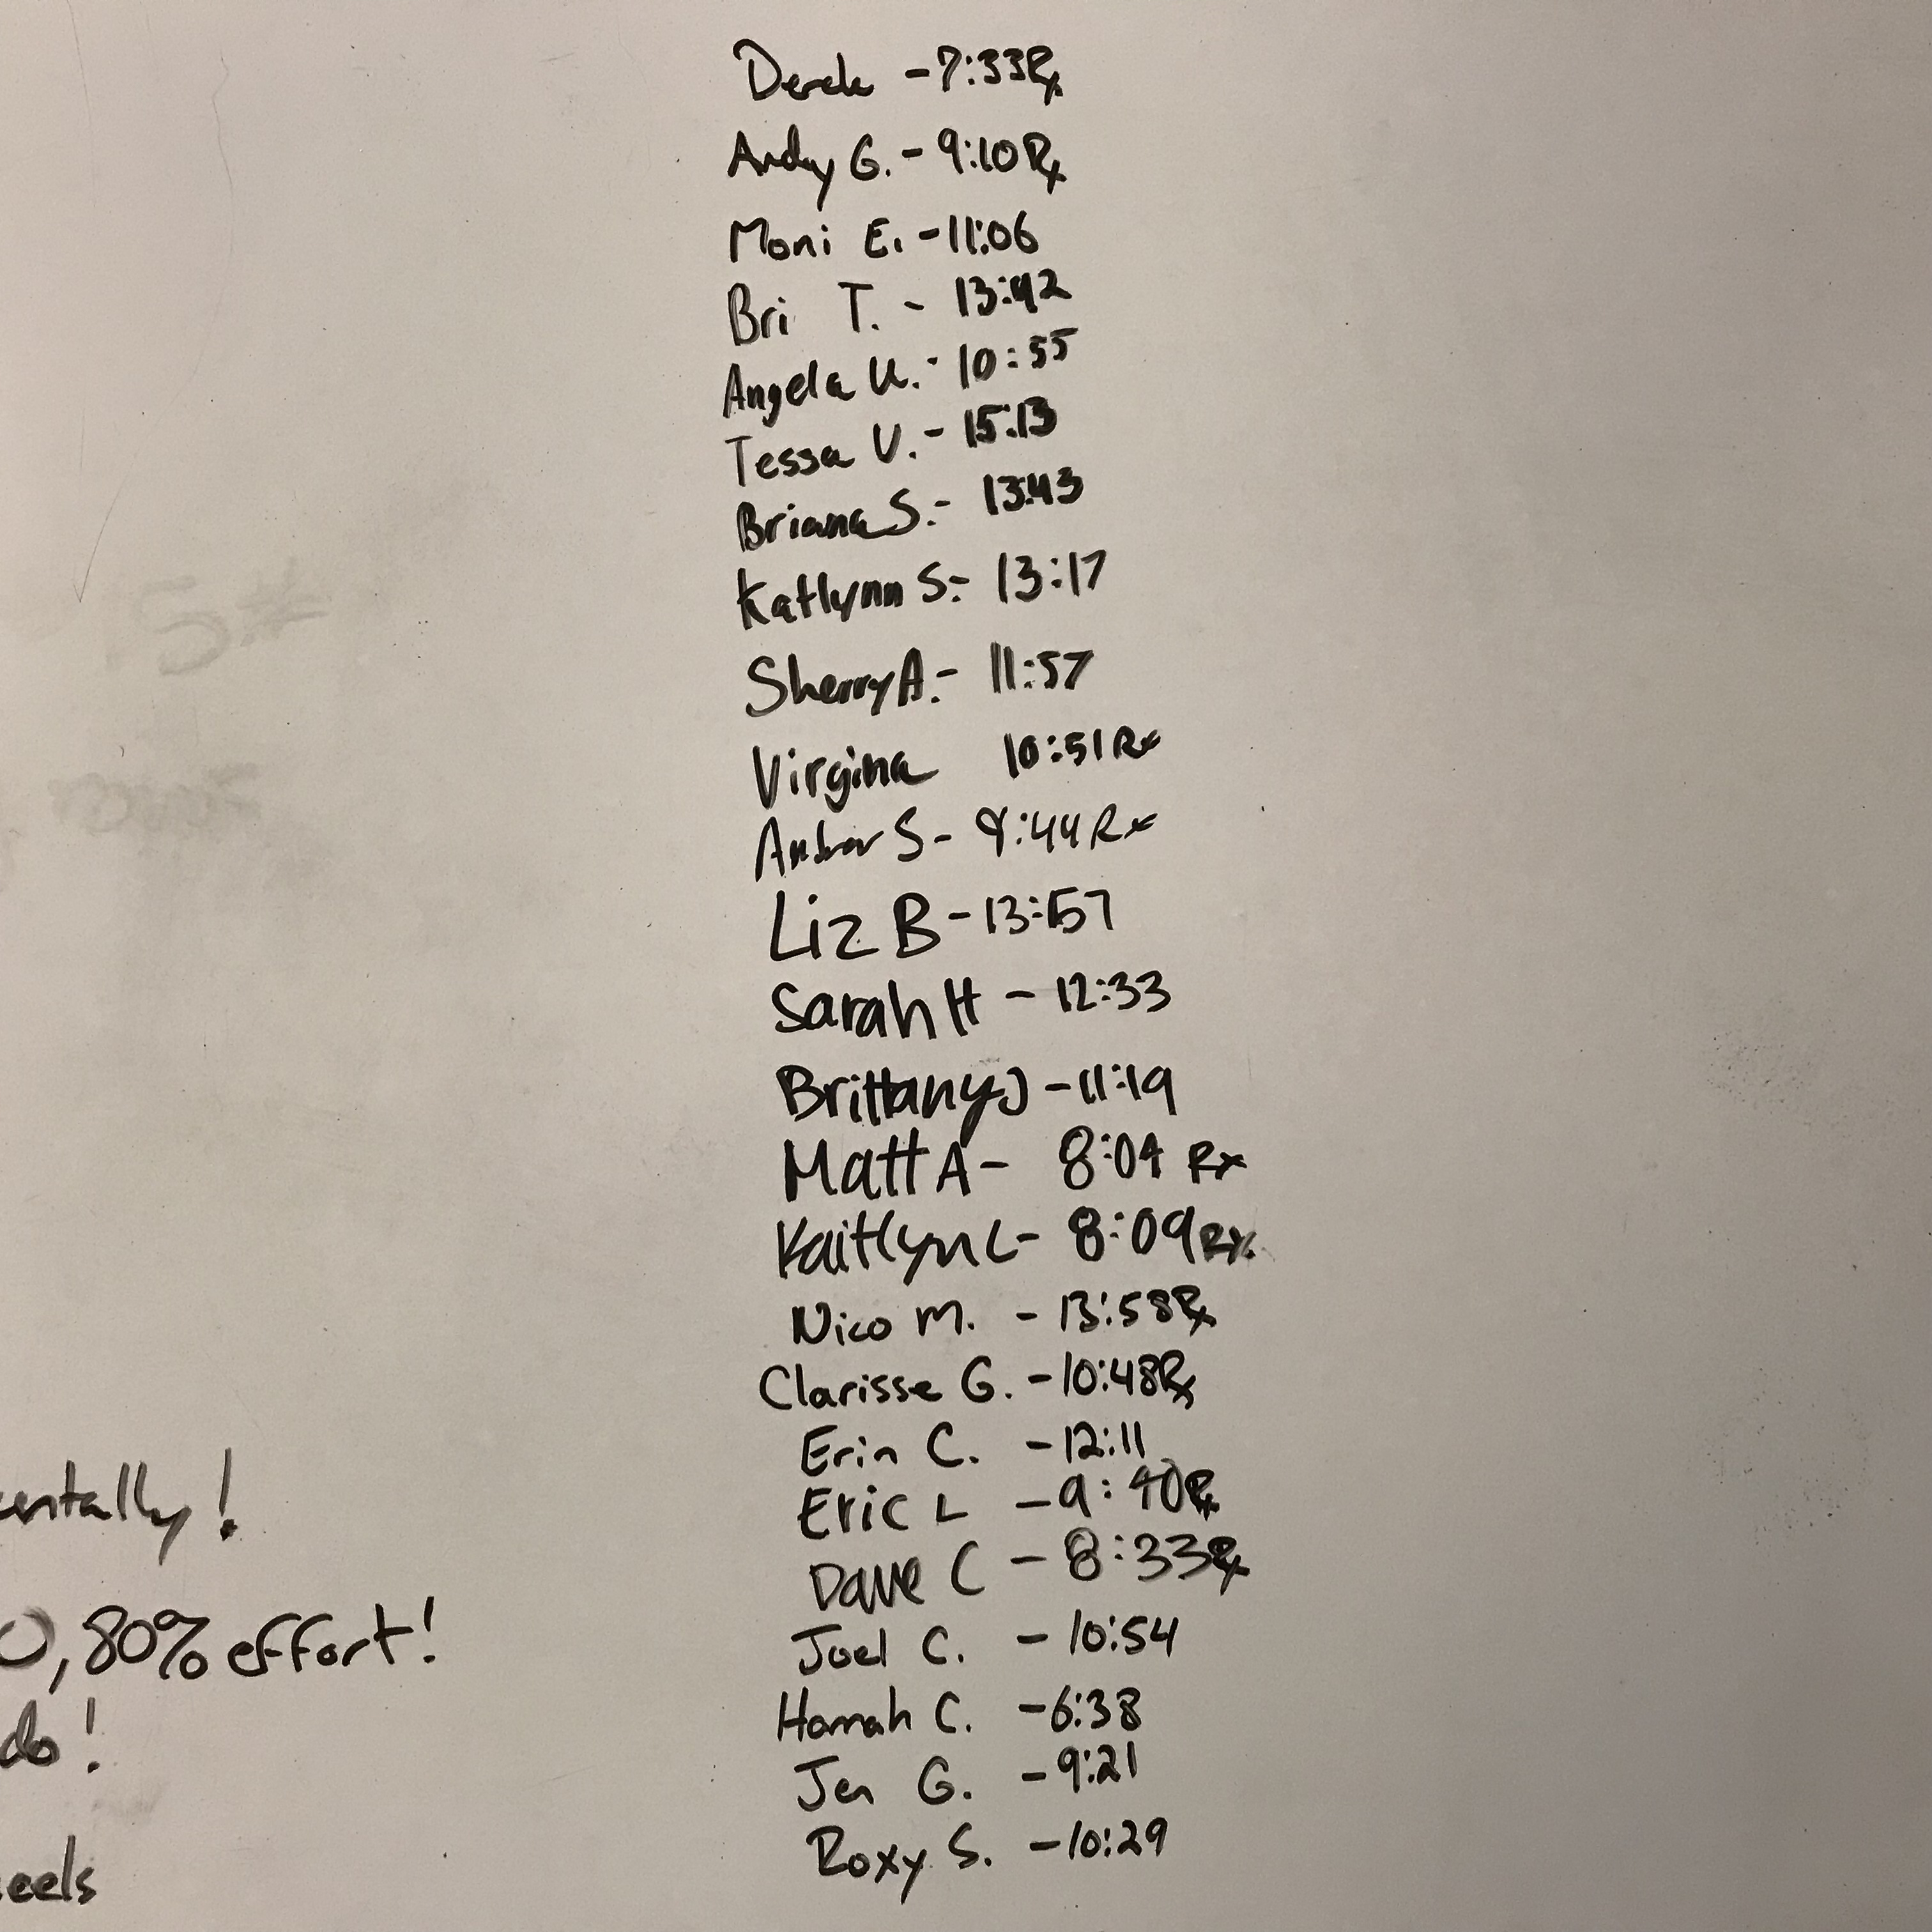 Derek - 7:33 Rx
Andy G. - 9:10 Rx
Moni E. - 11:06
Bri T. - 13:42
Angela K. - 10:55
Tessa V. - 15:13
Briana S. - 13:43
Katlynn S. - 13:17
Sherry A. - 11:57
Virgina 10:51 Rx
Amber S - :44 Rx
Liz B - 13:57
Sarah H - 12:33
Brittany J - 11:19
Matt A - 8:04 Rx
Kaitlyn L - 8:09 Rx
Nico M. - 13:58 Rx
Clarisse G. - 10:48 Rx
entally!
Erin C. - 12:11
Eric L - 9:40 Rx
Dave C - 8:33 Rx
, 80% effort!
Joel C. - 10:54
do!
Hannah C. - 6:38
Jen G. - 9:21
Roxy S. - 10:29
eels